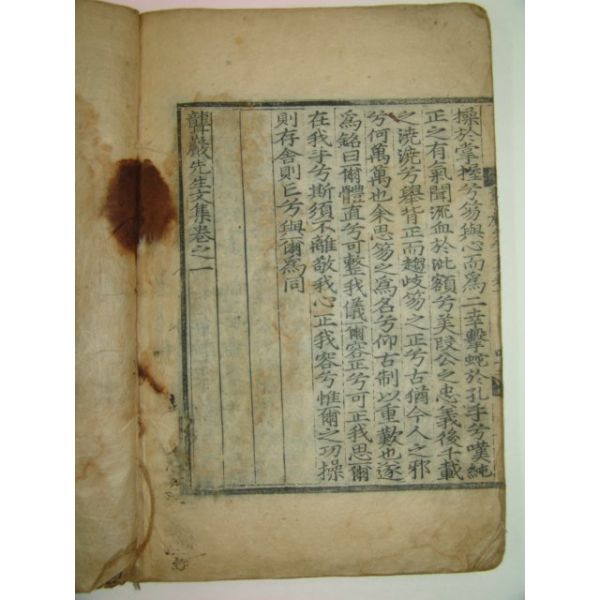 操於掌握兮笏與心而爲二幸擊蛇於孔手兮嘆純
正之有氣聞流血於泚額兮美段公之忠義後千載
之澆漓兮擧背正而趨歧笏之正兮古猶今人之邪
兮何萬萬也余思笏之爲名兮仰古制以重歎也遂
爲銘曰爾體直兮可整我儀爾容正兮可正我思爾
在我手兮斯須不離敬我心正我容兮惟爾之功操
則存舍則亡兮與爾爲同
聾巖先生文集卷之一